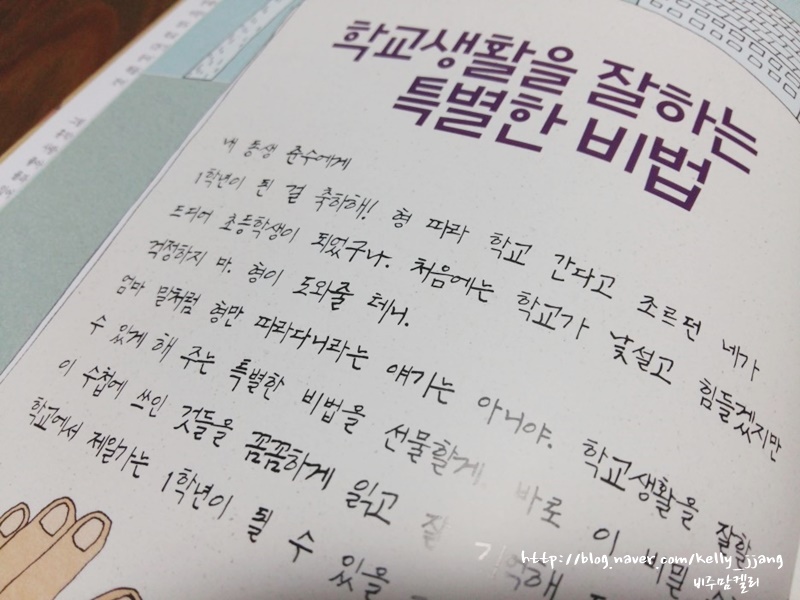 학교생활을 잘하는
특별한 비법
내 동생 준수에게
1학년이 된 걸 축하해! 형 따라 학교 간다고 조르던 네가
드디어 초등학생이 되었구나. 처음에는 학교가 낯설고 힘들겠지만
걱정하지 마. 형이 도와줄 테니.
엄마 말처럼 형만 따라다니라는 얘기는 아니야. 학교생활을 잘할
수 있게 해 주는 특별한 비법을 선물할게. 바로 이 비밀
이 수첩에 쓰인 것들을 꼼꼼하게 읽고 잘
학교에서 제일가는 1학년이 될 수 있을
http://blog.naver.com/kelly_jjang
비주맘켈리